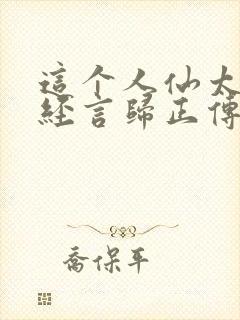 這个人仙太
經言歸正傳
喬保平